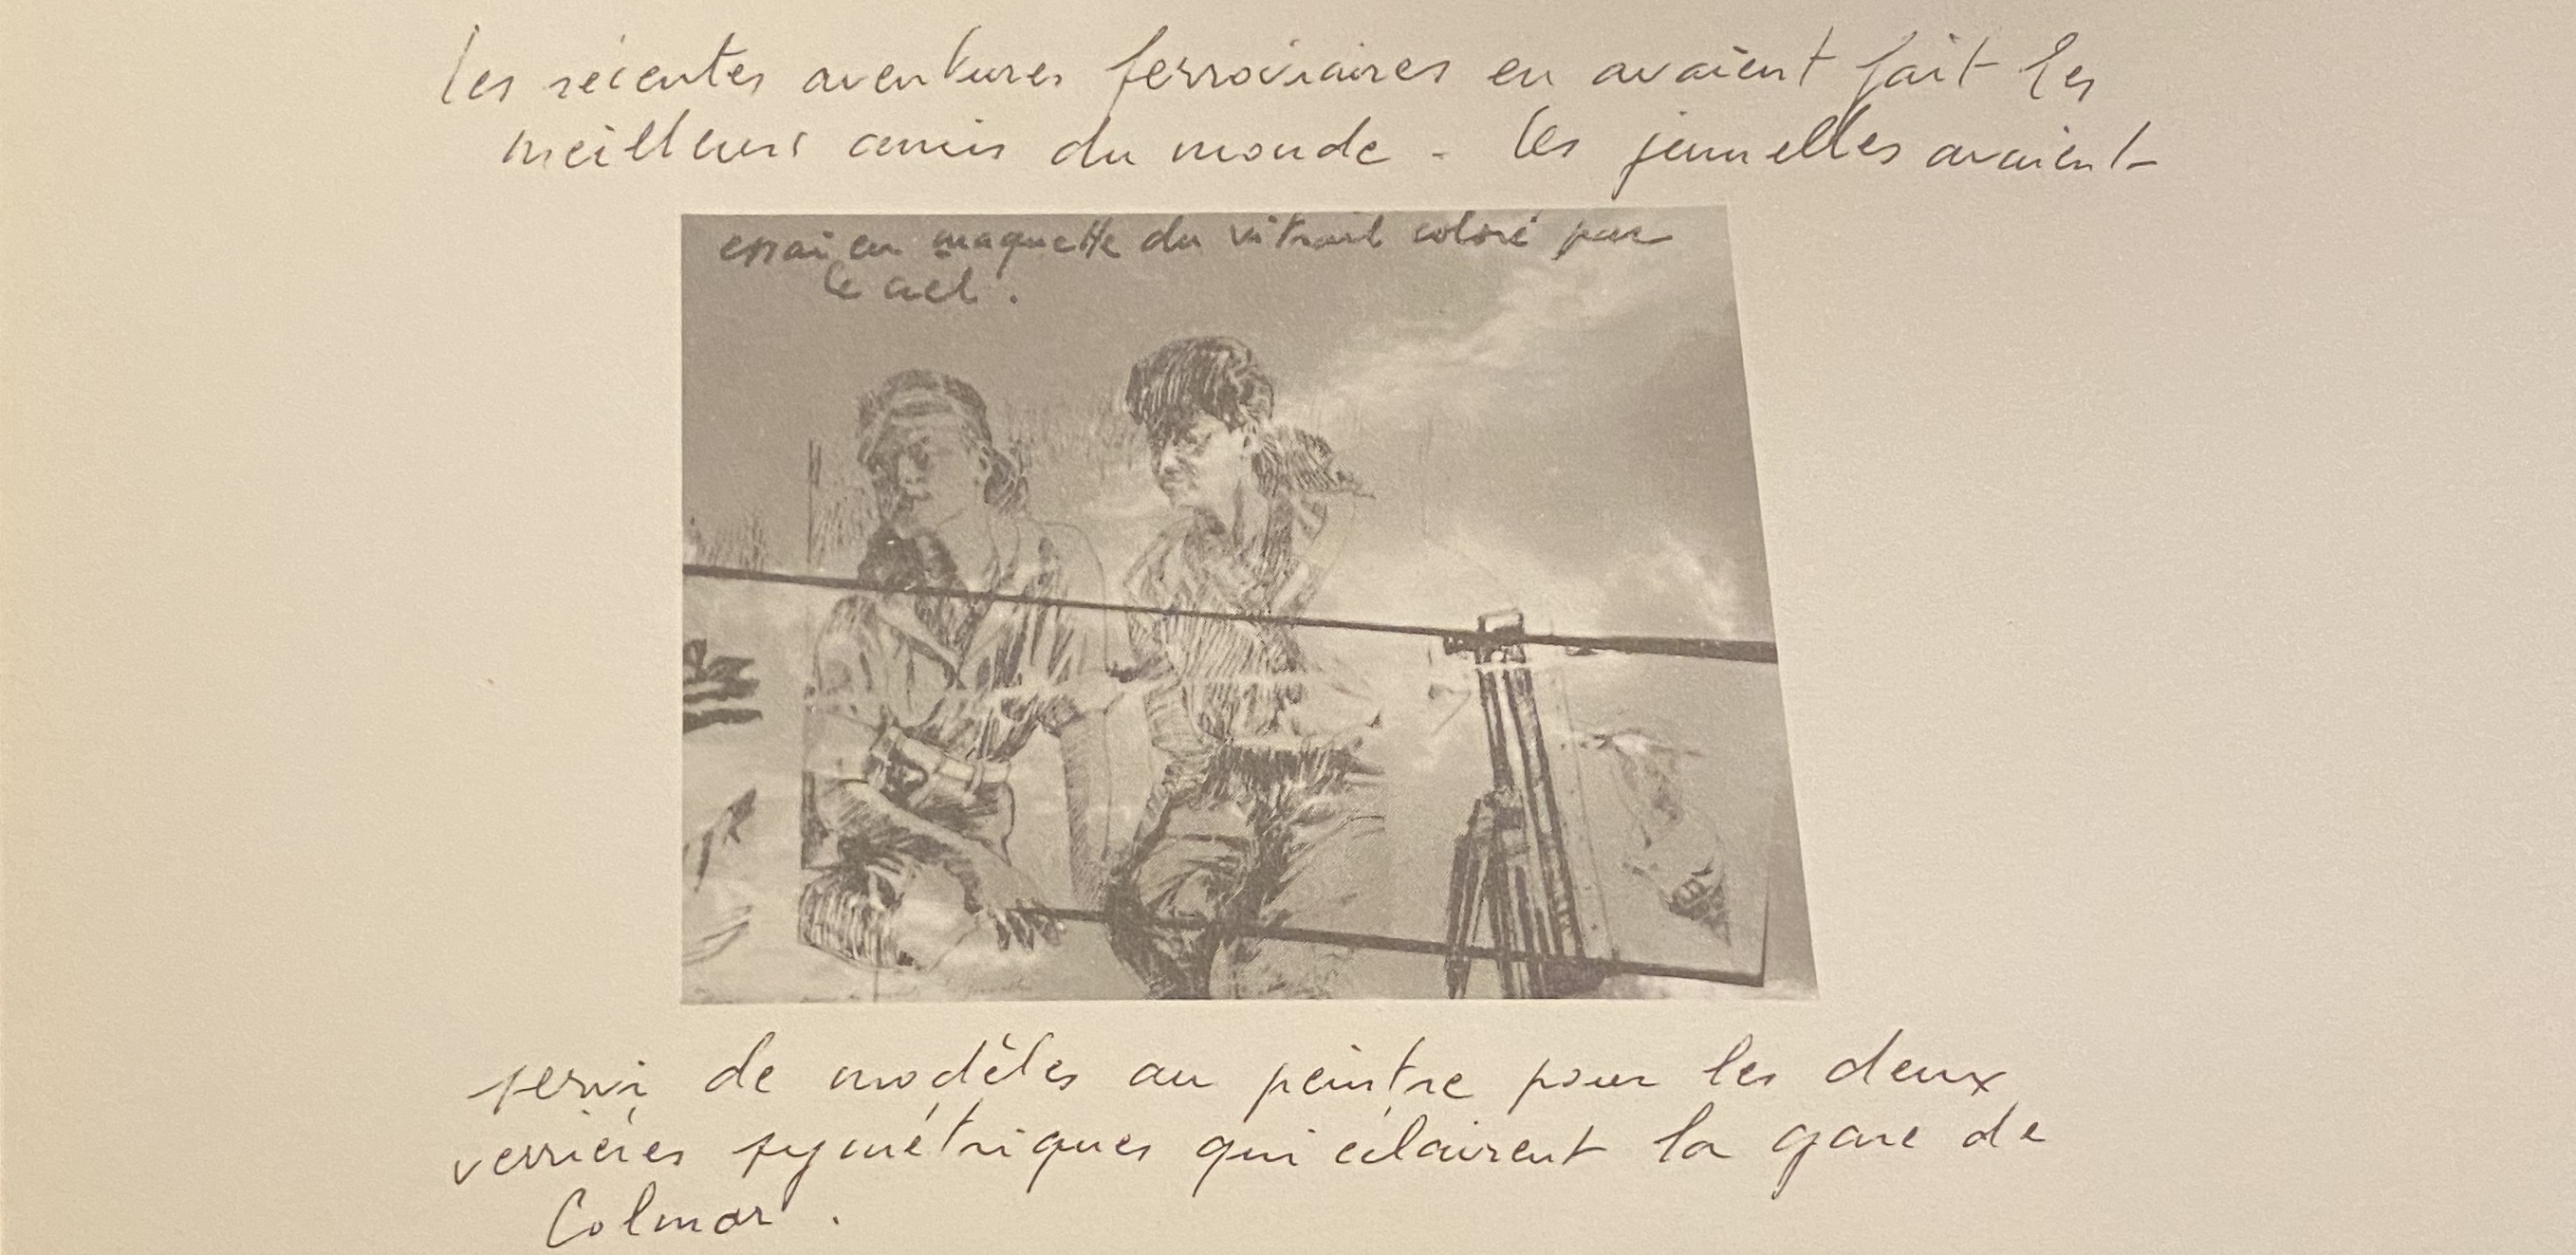 les récentes aventures ferroviaires en avaient fait les
meilleurs amis du monde. les jumelles avaient
essai en maquette du vitrail coloré par
le ciel.
servi de modèles au peintre pour les deux
verrières symétriques qui éclairent la gare de
Colmar.